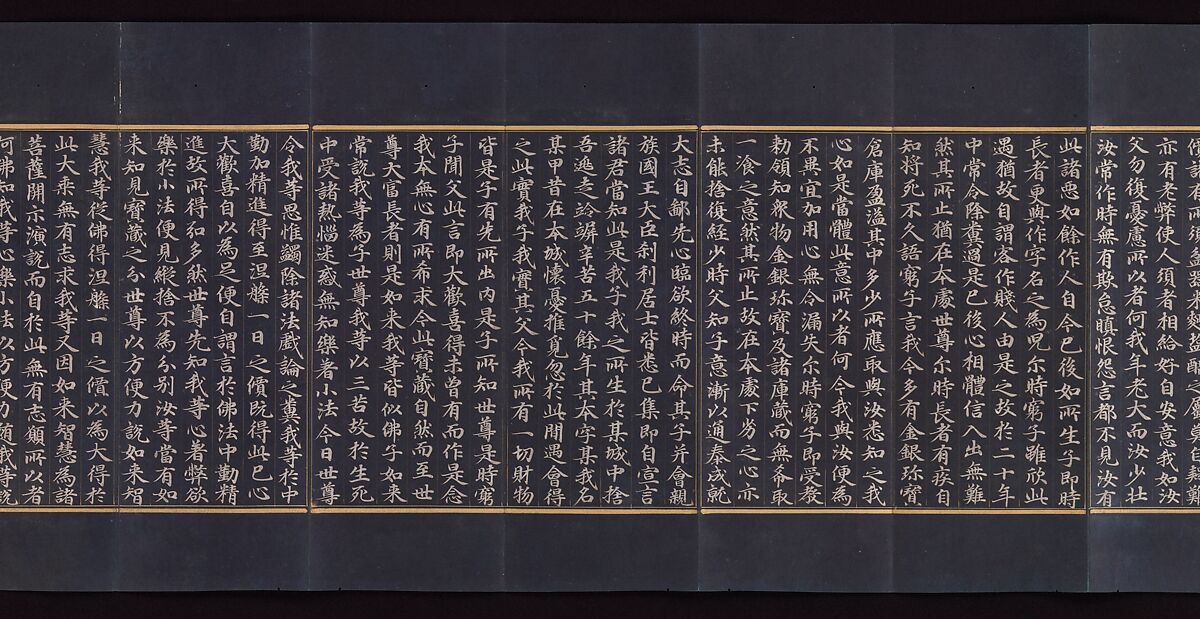 亦有老弊使人須者相給好自安意我如汝
父勿復憂慮所以者何我年老大而汝少壯
汝常作時無有欺怠瞋恨怨言都不見汝有
此諸惡如餘作人自今已後如所生子即時
長者更與作字名之為兒尒時窮子雖欣此
遇猶故自謂客作賤人由是之故於二十年
中常令除糞過是已後心相體信入出無難
然其所止猶在本處世尊尒時長者有疾自
知將死不久語窮子言我今多有金銀珎寶
倉庫盈溢其中多少所應取與汝悉知之我
心如是當體此意所以者何今我與汝便為
不異宜加用心無令漏失尒時窮子即受教
勑領知衆物金銀珎寶及諸庫藏而無希取
一飡之意然其所止故在本處下劣之心亦
未能捨復經少時父知子意漸以通泰成就
大志自鄙先心臨欲終時而命其子并會親
族國王大臣刹利居士皆悉已集即自宣言
諸君當知此是我子我之所生於某城中捨
吾逃走竛竮辛苦五十餘年其本字某我名
某甲昔在本城懷憂推覓忽於此間遇會得
之此實我子我實其父今我所有一切財物
皆是子有先所出內是子所知世尊是時窮
子聞父此言即大歡喜得未曾有而作是念
我本無心有所希求今此寶藏自然而至世
尊大富長者則是如来我等皆似佛子如来
常說我等為子世尊我等以三苦故於生死
中受諸熱惱迷惑無知樂著小法今日世尊
令我等思惟蠲除諸法戲論之糞我等於中
勤加精進得至涅槃一日之價既得此已心
大歡喜自以為足便自謂言於佛法中勤精
進故所得弘多然世尊先知我等心著弊欲
樂於小法便見縱捨不為分別汝等當有如
来知見寶藏之分世尊以方便力說如来智
慧我等從佛得涅槃一日之價以為大得於
此大乘無有志求我等又因如来智慧為諸
菩薩開示演說而自於此無有志願所以者
何佛知我等心樂小法以方便力隨我等說